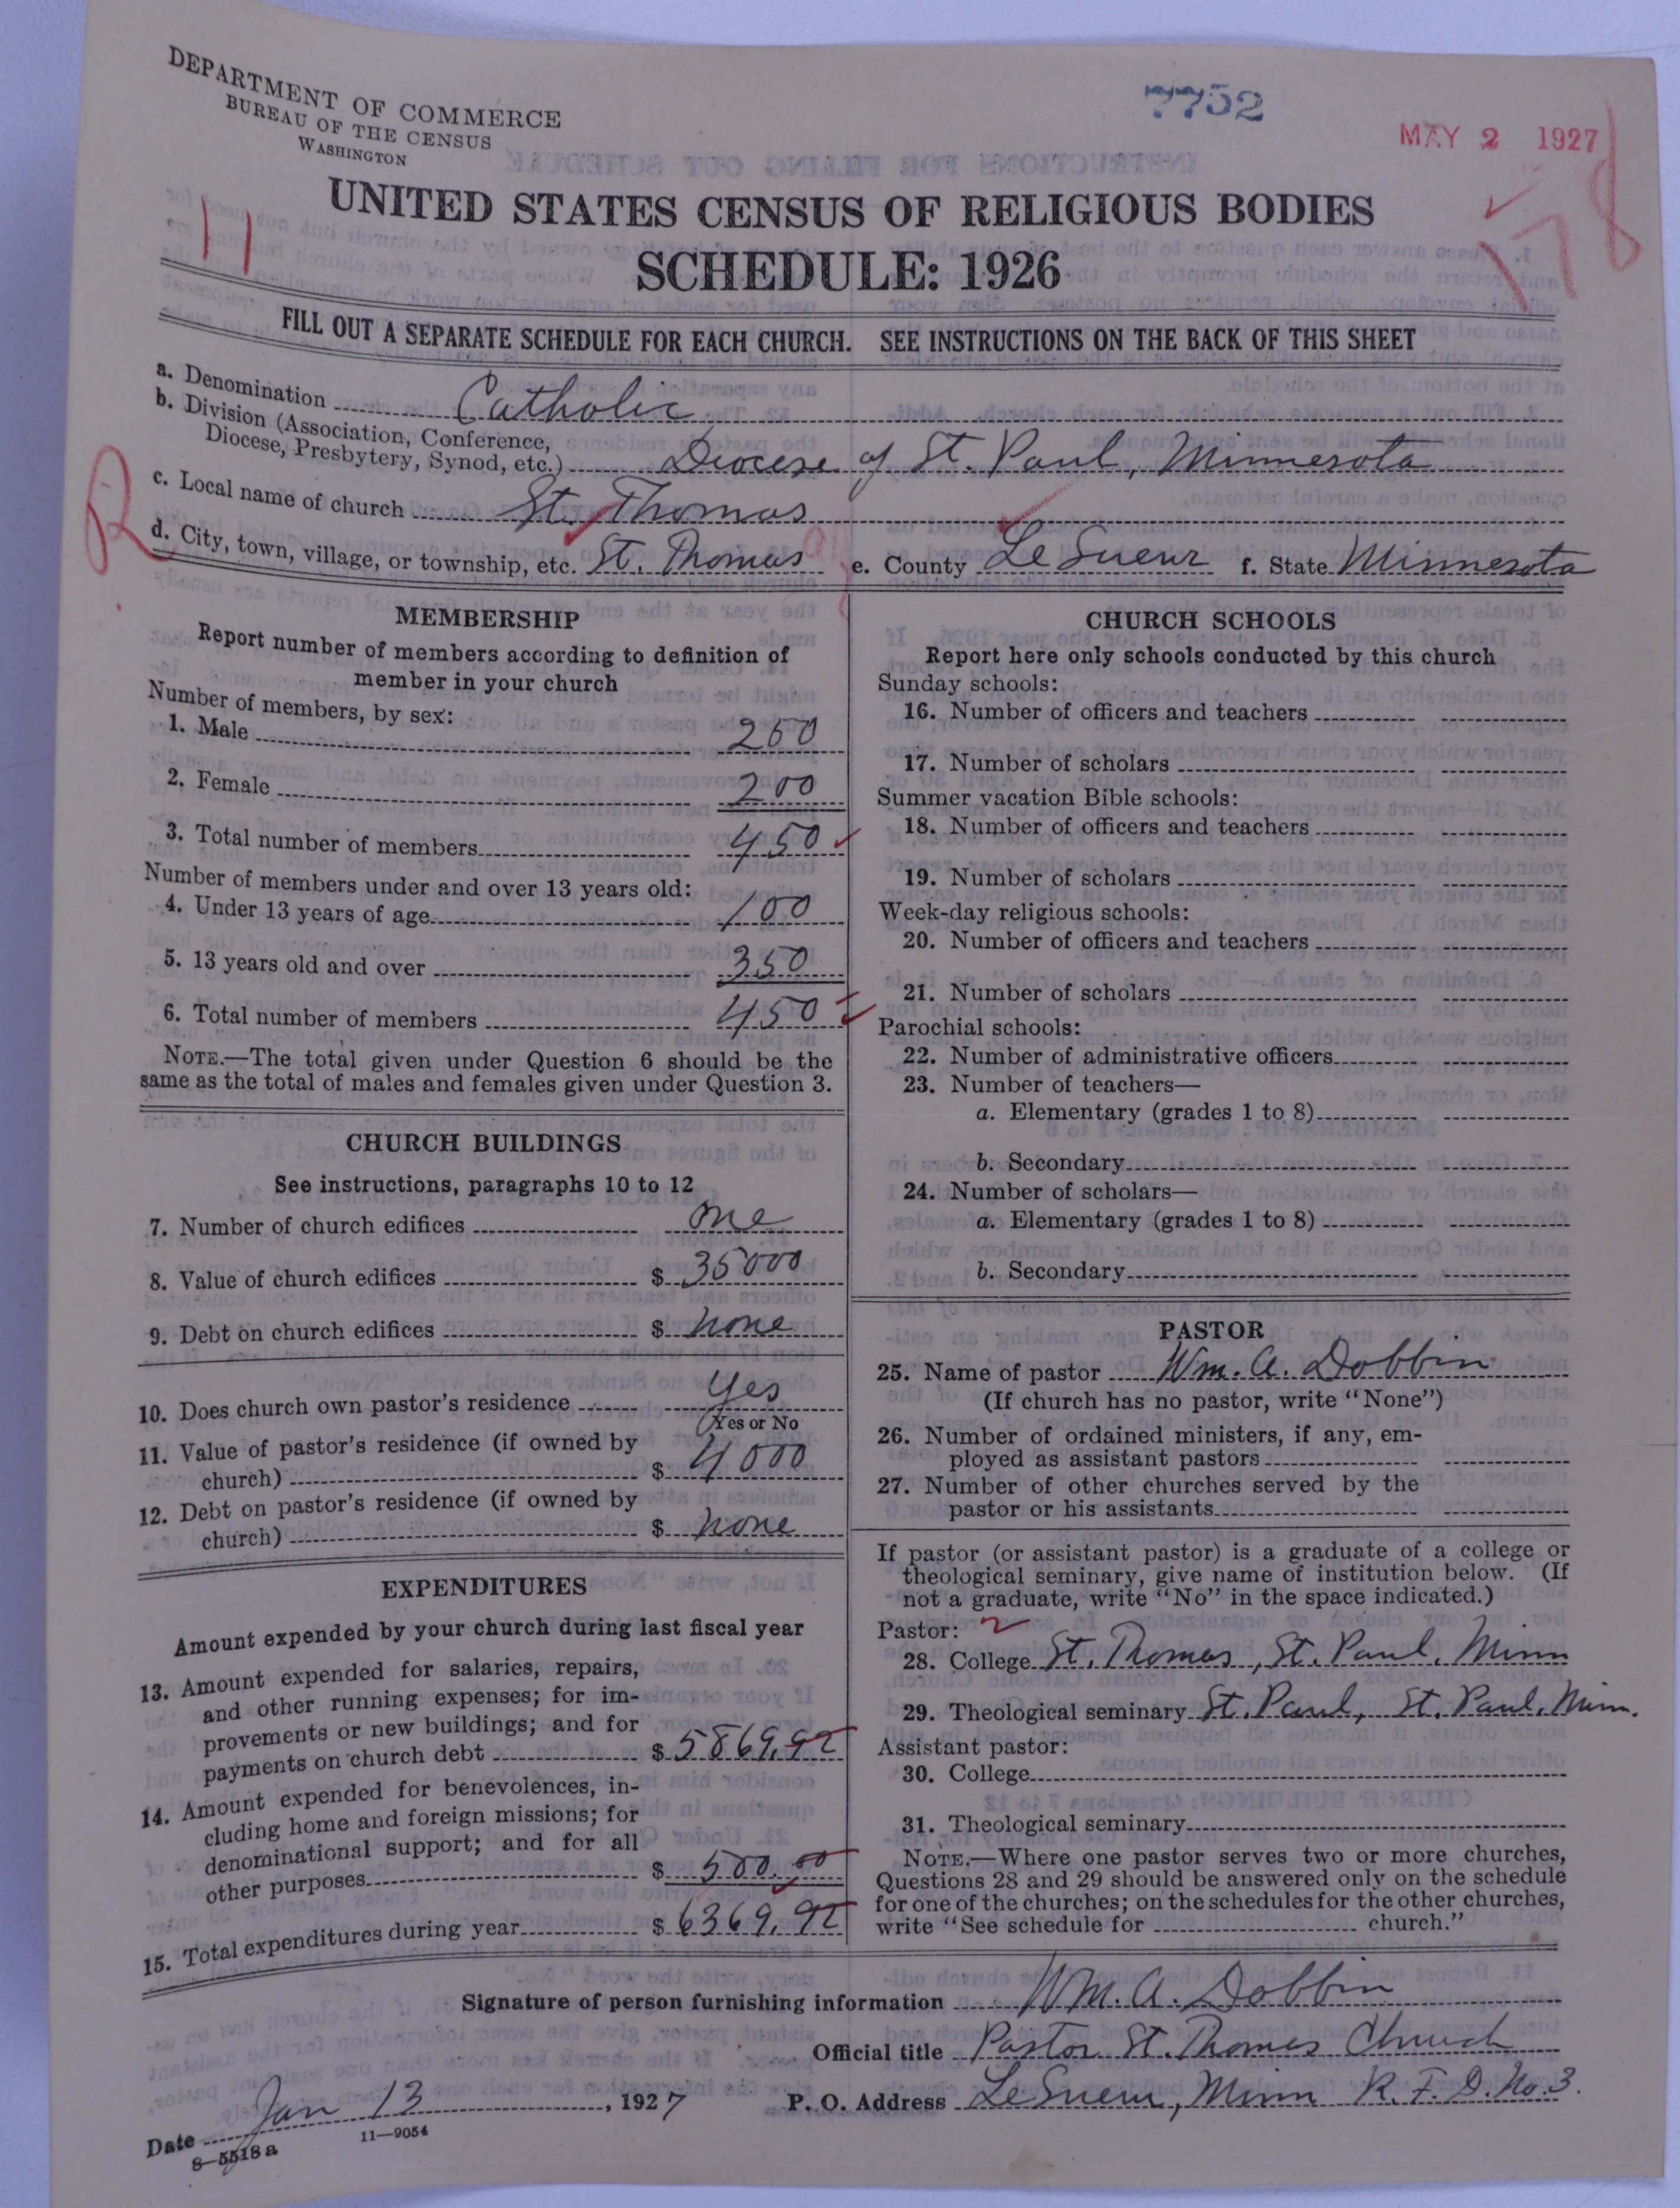 DEPARTMENT OF COMMERCE
BUREAU OF THE CENSUS
WASHINGTON
7752
MAY 2 1927
11
178
UNITED STATES CENSUS OF RELIGIOUS BODIES
SCHEDULE: 1926
FILL OUT A SEPARATE SCHEDULE FOR EACH CHURCH. SEE INSTRUCTIONS ON THE BACK OF THIS SHEET
a. Denomination Catholic
b. Division (Association, Conference,
Diocese, Presbytery, Synod, etc.) Diocese of St. Paul, Minnesota
R
c. Local name of church St. Thomas
d. City, town, village, or township, etc. St. Thomas e. County Le Sueur f. State Minnesota
MEMBERSHIP
Report number of members according to definition of
member in your church
Number of members, by sex:
1. Male 250
2. Female 200
3. Total number of members 450
Number of members under and over 13 years old:
4. Under 13 years of age 100
5. 13 years old and over 350
6. Total number of members 450
NOTE.—The total given under Question 6 should be the
same as the total of males and females given under Question 3.
CHURCH BUILDINGS
See instructions, paragraphs 10 to 12
7. Number of church edifices one
8. Value of church edifices $ 35000
9. Debt on church edifices $ none
10. Does church own pastor's residence Yes
Yes or No
11. Value of pastor's residence (if owned by
church) $ 4000
12. Debt on pastor's residence (if owned by
church) $ none
EXPENDITURES
Amount expended by your church during last fiscal year
13. Amount expended for salaries, repairs,
and other running expenses; for im-
provements or new buildings; and for
payments on church debt $ 5869.92
14. Amount expended for benevolences, in-
cluding home and foreign missions; for
denominational support; and for all
other purposes $ 500.00
15. Total expenditures during year $ 6369.92
CHURCH SCHOOLS
Report here only schools conducted by this church
Sunday schools:
16. Number of officers and teachers
17. Number of scholars
Summer vacation Bible schools:
18. Number of officers and teachers
19. Number of scholars
Week-day religious schools:
20. Number of officers and teachers
21. Number of scholars
Parochial schools:
22. Number of administrative officers
23. Number of teachers—
a. Elementary (grades 1 to 8)
b. Secondary
24. Number of scholars—
a. Elementary (grades 1 to 8)
b. Secondary
PASTOR
25. Name of pastor Wm. A. Dobbin
(If church has no pastor, write "None")
26. Number of ordained ministers, if any, em-
ployed as assistant pastors
27. Number of other churches served by the
pastor or his assistants
If pastor (or assistant pastor) is a graduate of a college or
theological seminary, give name of institution below. (If
not a graduate, write "No" in the space indicated.)
Pastor:
28. College St. Thomas, St. Paul, Minn
29. Theological seminary St. Paul, St. Paul, Minn.
Assistant pastor:
30. College
31. Theological seminary
NOTE.—Where one pastor serves two or more churches,
Questions 28 and 29 should be answered only on the schedule
for one of the churches; on the schedules for the other churches,
write "See schedule for church."
Signature of person furnishing information Wm. A. Dobbin
Official title Pastor St. Thomas Church
Date Jan 13, 1927 P. O. Address Le Sueur, Minn R. F. D. No. 3.
8—5518a 11—9054